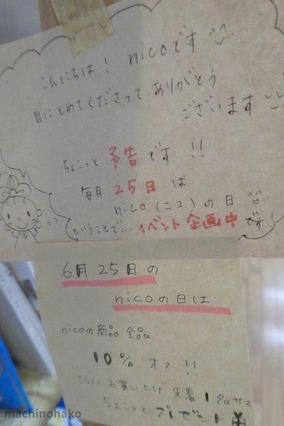 こんにちは! nicoです
目にとめてくださって ありがとう
ございます
ちょこっと 予告 です !!
毎月 25日 は
nico (ニコ) の 日
ということで… イベント 企画中 です!
6月 25日 の
nicoの日は
nicoの商品 全品
10% オフ !!
さらに お買い上げ 先着
ちょこっと プレゼント
machinohako